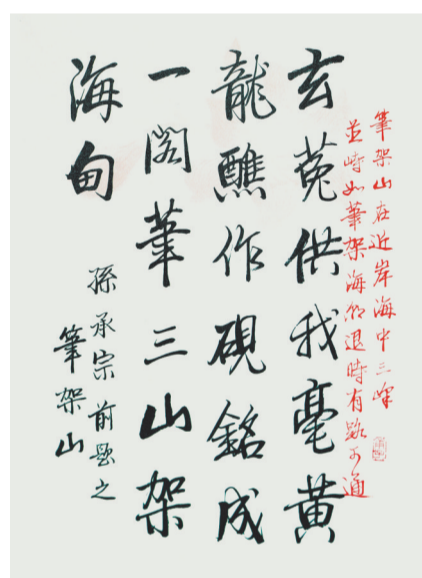 筆架山在近岸海中三峰
並峙如筆架海潮退時有路可通
玄菟供我毫黄
龍醮作硯銘成
一閣筆三山架
海甸
孫承宗前題之
筆架山